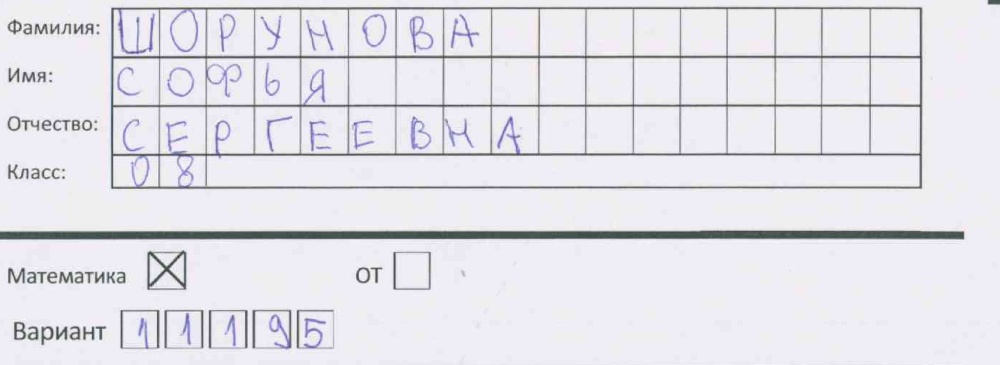 Фамилия: ШОРУНОВА
Имя: СОФЬЯ
Отчество: СЕРГЕЕВНА
Класс: 08
Математика ОТ
Вариант 11195